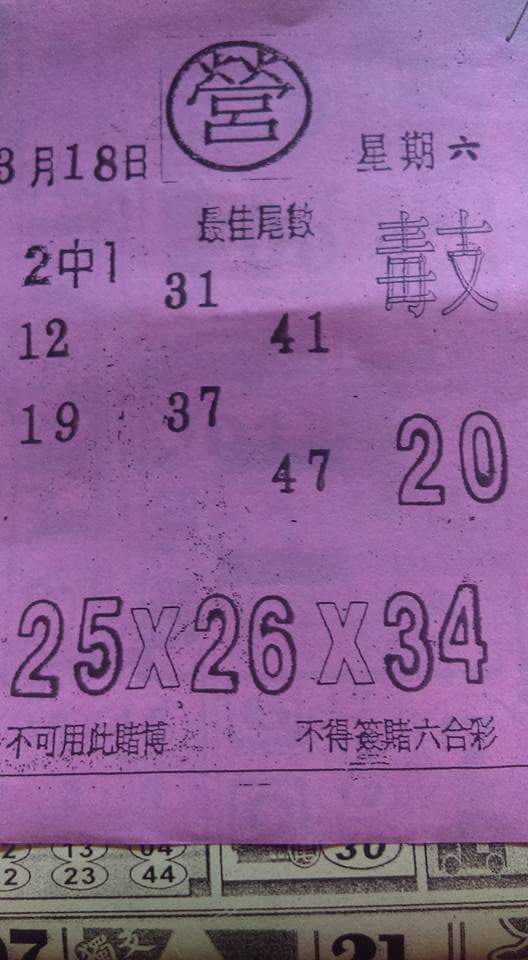 營
3月18日 星期六
最佳尾數
2中1 31 毒支
12 41
19 37
47 20
25X26X34
不可用此賭博 不得簽賭六合彩
13 04
2 23 44
30
21